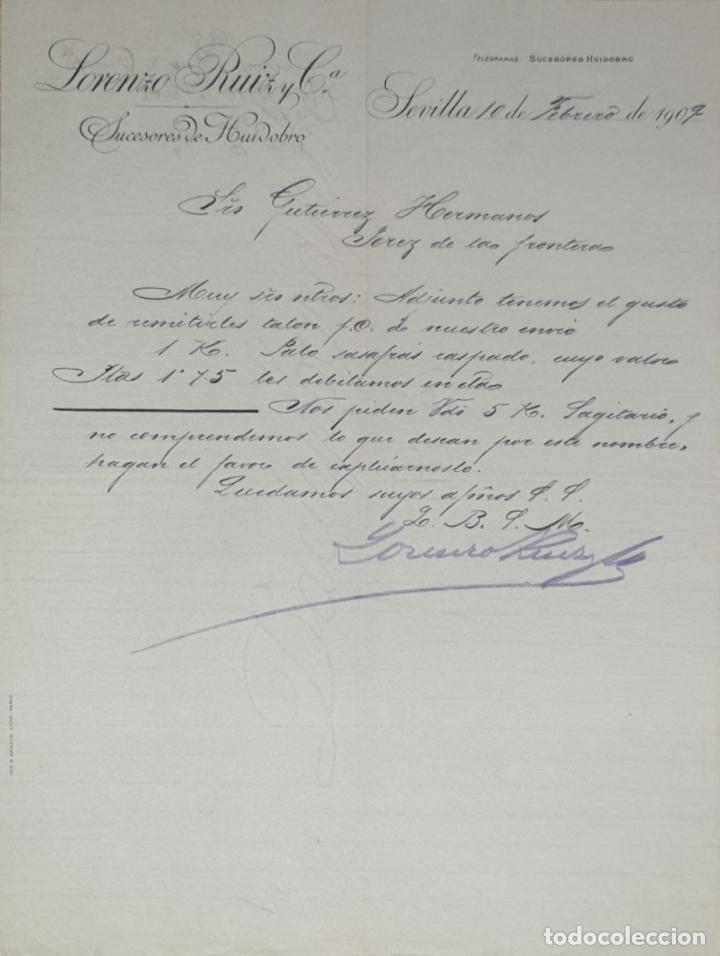 TELEGRAMAS: SUCESORES HUIDOBRO
Lorenzo Ruiz y C.ª
Sucesores de Huidobro
Sevilla 10 de Febrero de 1909
Srs Gutierrez Hermanos
Jerez de la frontera
Muy srs ntros: Adjunto tenemos el gusto
de remitirles talon f.C. de nuestro envio
1 K. Palo sasafrás raspado, cuyo valor
Ptas 1'75 les debitamos en cta
Nos piden Vds 5 K. Sagitario, y
no comprendemos lo que desean por este nombre,
hagan el favor de explicarnoslo.
Quedamos suyos afmos S. S.
Q. B. S. M.
Lorenzo Ruiz y Ca
todocoleccion
todocoleccion.net